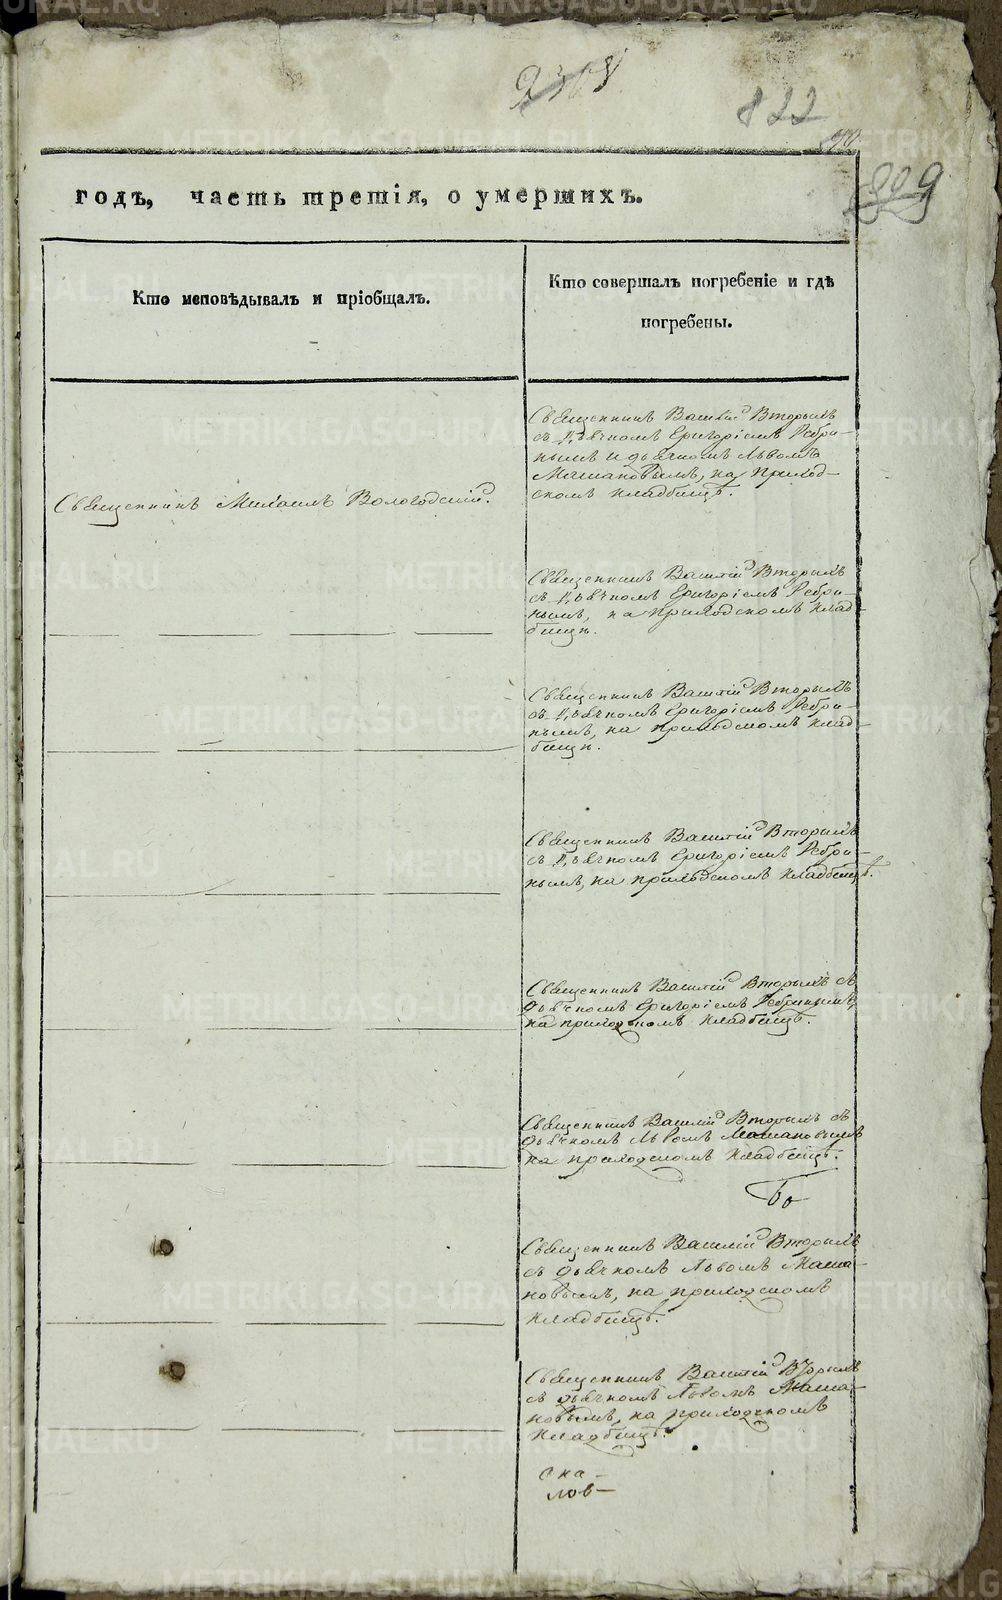 822
809
годъ, часть третія, о умершихъ.
Кто исповѣдывалъ и пріобщалъ.
Кто совершалъ погребеніе и гдѣ
погребены.
Священникъ Михаилъ Вологодскій.
Священникъ Василій Вторыхъ
съ дьячкомъ Григоріемъ Ребри-
нымъ и дьячкомъ Львомъ
на приход-
скомъ кладбищѣ.
Священникъ Василій Вторыхъ
съ дьячкомъ Григоріемъ Ребри-
нымъ, на приходскомъ клад-
бищѣ.
Священникъ Василій Вторыхъ
съ дьячкомъ Григоріемъ Ребри-
нымъ, на приходскомъ клад-
бищѣ.
Священникъ Василій Вторыхъ
съ дьячкомъ Григоріемъ Ребри-
нымъ, на приходскомъ кладбищѣ.
Священникъ Василій Вторыхъ съ
дьячкомъ Григоріемъ Ребринымъ,
на приходскомъ кладбищѣ.
Священникъ Василій Вторыхъ съ
дьячкомъ Львомъ Машановымъ
на приходскомъ кладбищѣ.
Священникъ Василій Вторыхъ
съ дьячкомъ Львомъ Маша-
новымъ, на приходскомъ
кладбищѣ.
Священникъ Василій Вторыхъ
съ дьячкомъ Львомъ Маша-
новымъ, на приходскомъ
кладбищѣ.
ска-
лов-
METRIKI.GASO-URAL.RU